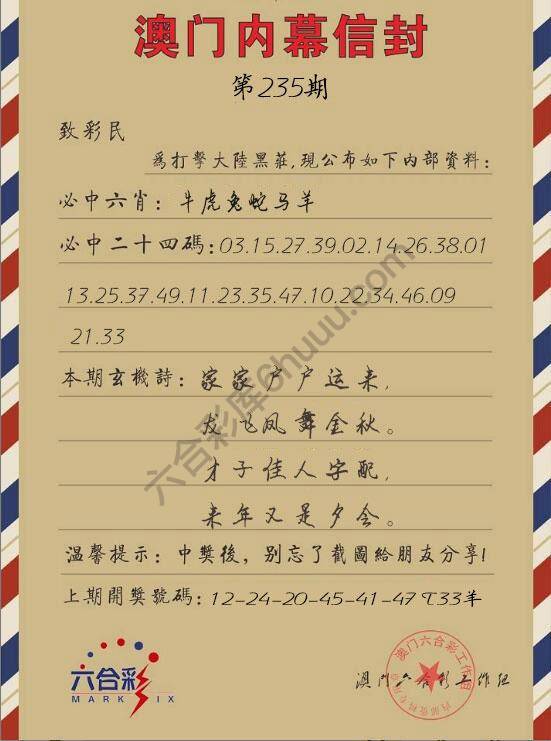 澳门内幕信封
第235期
致彩民
為打擊大陸黑莊,現公布如下内部資料:
必中六肖: 牛虎兔蛇马羊
必中二十四碼:03.15.27.39.02.14.26.38.01
13.25.37.49.11.23.35.47.10.22.34.46.09
21.33
本期玄機詩: 家家户户运来,
龙飞凤舞金秋。
才子佳人字配,
来年又是夕会。
溫馨提示: 中獎後, 别忘了截圖給朋友分享!
上期開獎號碼: 12-24-20-45-41-47 T33羊
六合彩
MARK SIX
澳门六合彩工作组
澳门六合彩工作组
六合彩库6huuu.com